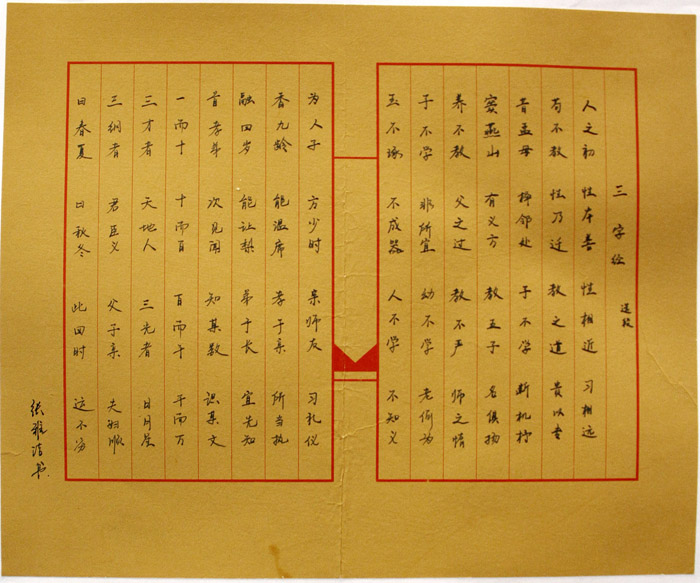 三字经
选段
人之初 性本善 性相近 习相远
苟不教 性乃迁 教之道 贵以专
昔孟母 择邻处 子不学 断机杼
窦燕山 有义方 教五子 名俱扬
养不教 父之过 教不严 师之惰
子不学 非所宜 幼不学 老何为
玉不琢 不成器 人不学 不知义
为人子 方少时 亲师友 习礼仪
香九龄 能温席 孝于亲 所当执
融四岁 能让梨 弟于长 宜先知
首孝弟 次见闻 知某数 识某文
一而十 十而百 百而千 千而万
三才者 天地人 三光者 日月星
三纲者 君臣义 父子亲 夫妇顺
曰春夏 曰秋冬 此四时 运不穷
张雅洁书